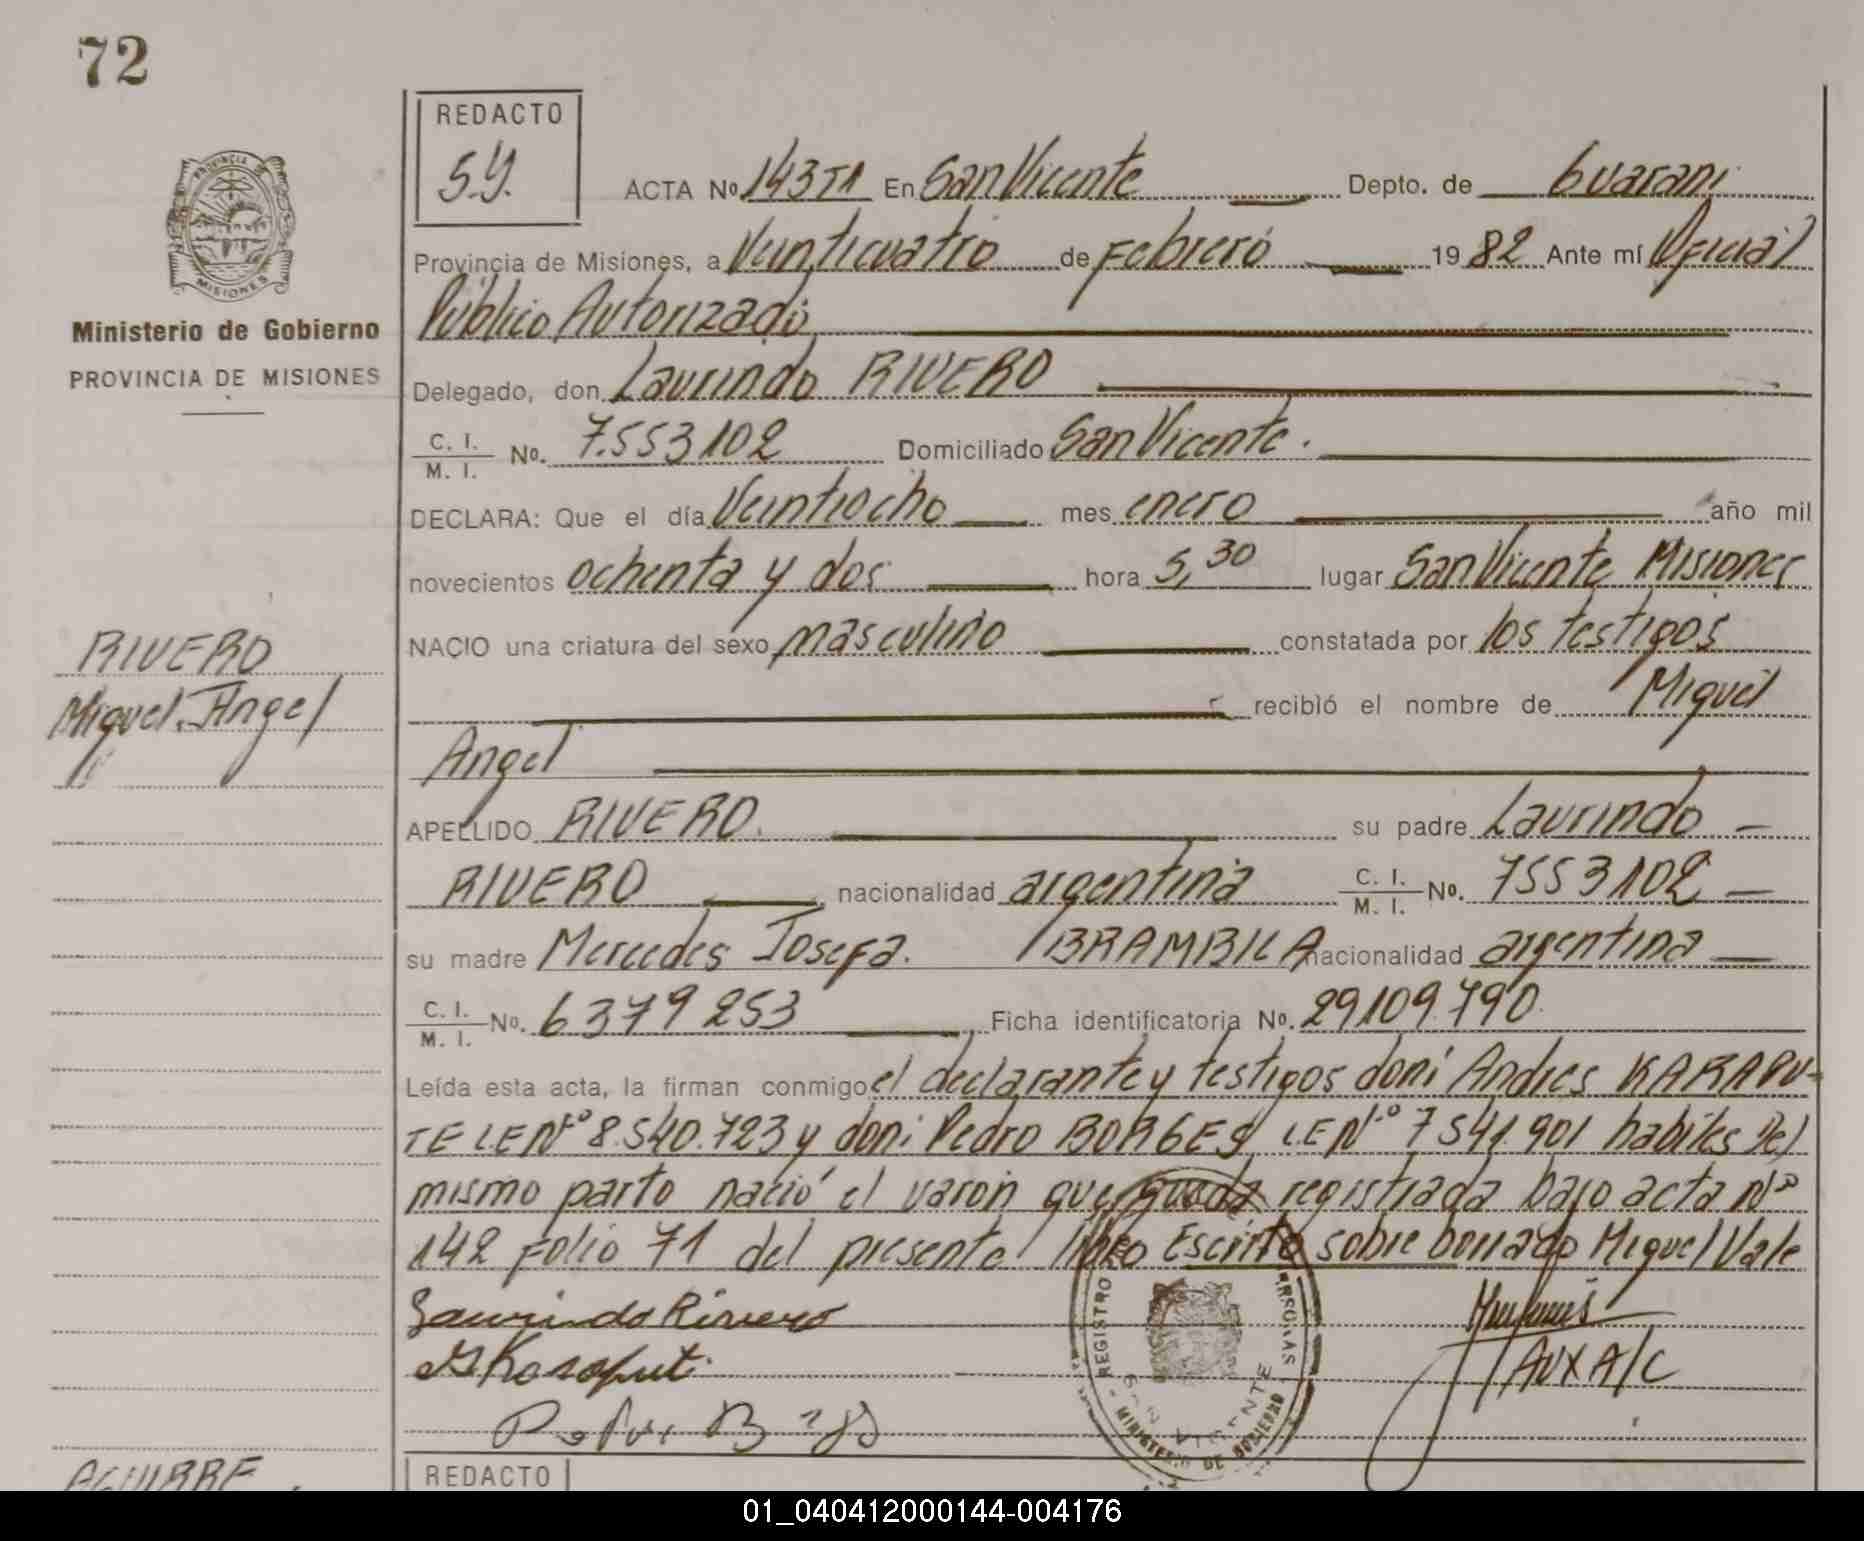 72
REDACTO
S.Y.
PROVINCIA DE
MISIONES
Ministerio de Gobierno
PROVINCIA DE MISIONES
ACTA No 143 T1 En San Vicente Depto. de Guarani
Provincia de Misiones, a Veinticuatro de Febrero 1982 Ante mí Oficial
Público Autorizado
Delegado, don Laurindo RIVERO
C. I. / M. I. No. 7.553102 Domiciliado San Vicente.
DECLARA: Que el día Veintiocho mes enero año mil
novecientos ochenta y dos hora 5,30 lugar San Vicente Misiones
NACIO una criatura del sexo masculino constatada por los testigos
recibió el nombre de Miguel
Angel
RIVERO
Miguel Angel
APELLIDO RIVERO. su padre Laurindo
RIVERO nacionalidad argentina C. I. / M. I. No. 7553102
su madre Mercedes Josefa. BRAMBILA nacionalidad argentina
C. I. / M. I. No. 6379253 Ficha identificatoria No. 29109.790.
Leída esta acta, la firman conmigo el declarante y testigos don: Andres KARAPU-
TE LE Nº 8.540.723 y don: Pedro BORGES LE Nº 7541.901 habiles Del
mismo parto nació el varon que queda registrada bajo acta Nº
142 Folio 71 del presente libro Escrito sobre borrado Miguel Vale
Laurindo Rivero
Pedro
AUX A/C
REGISTRO
SAN VICENTE
MINISTERIO DE GOBIERNO
AGUIRRE
REDACTO
01_040412000144-004176